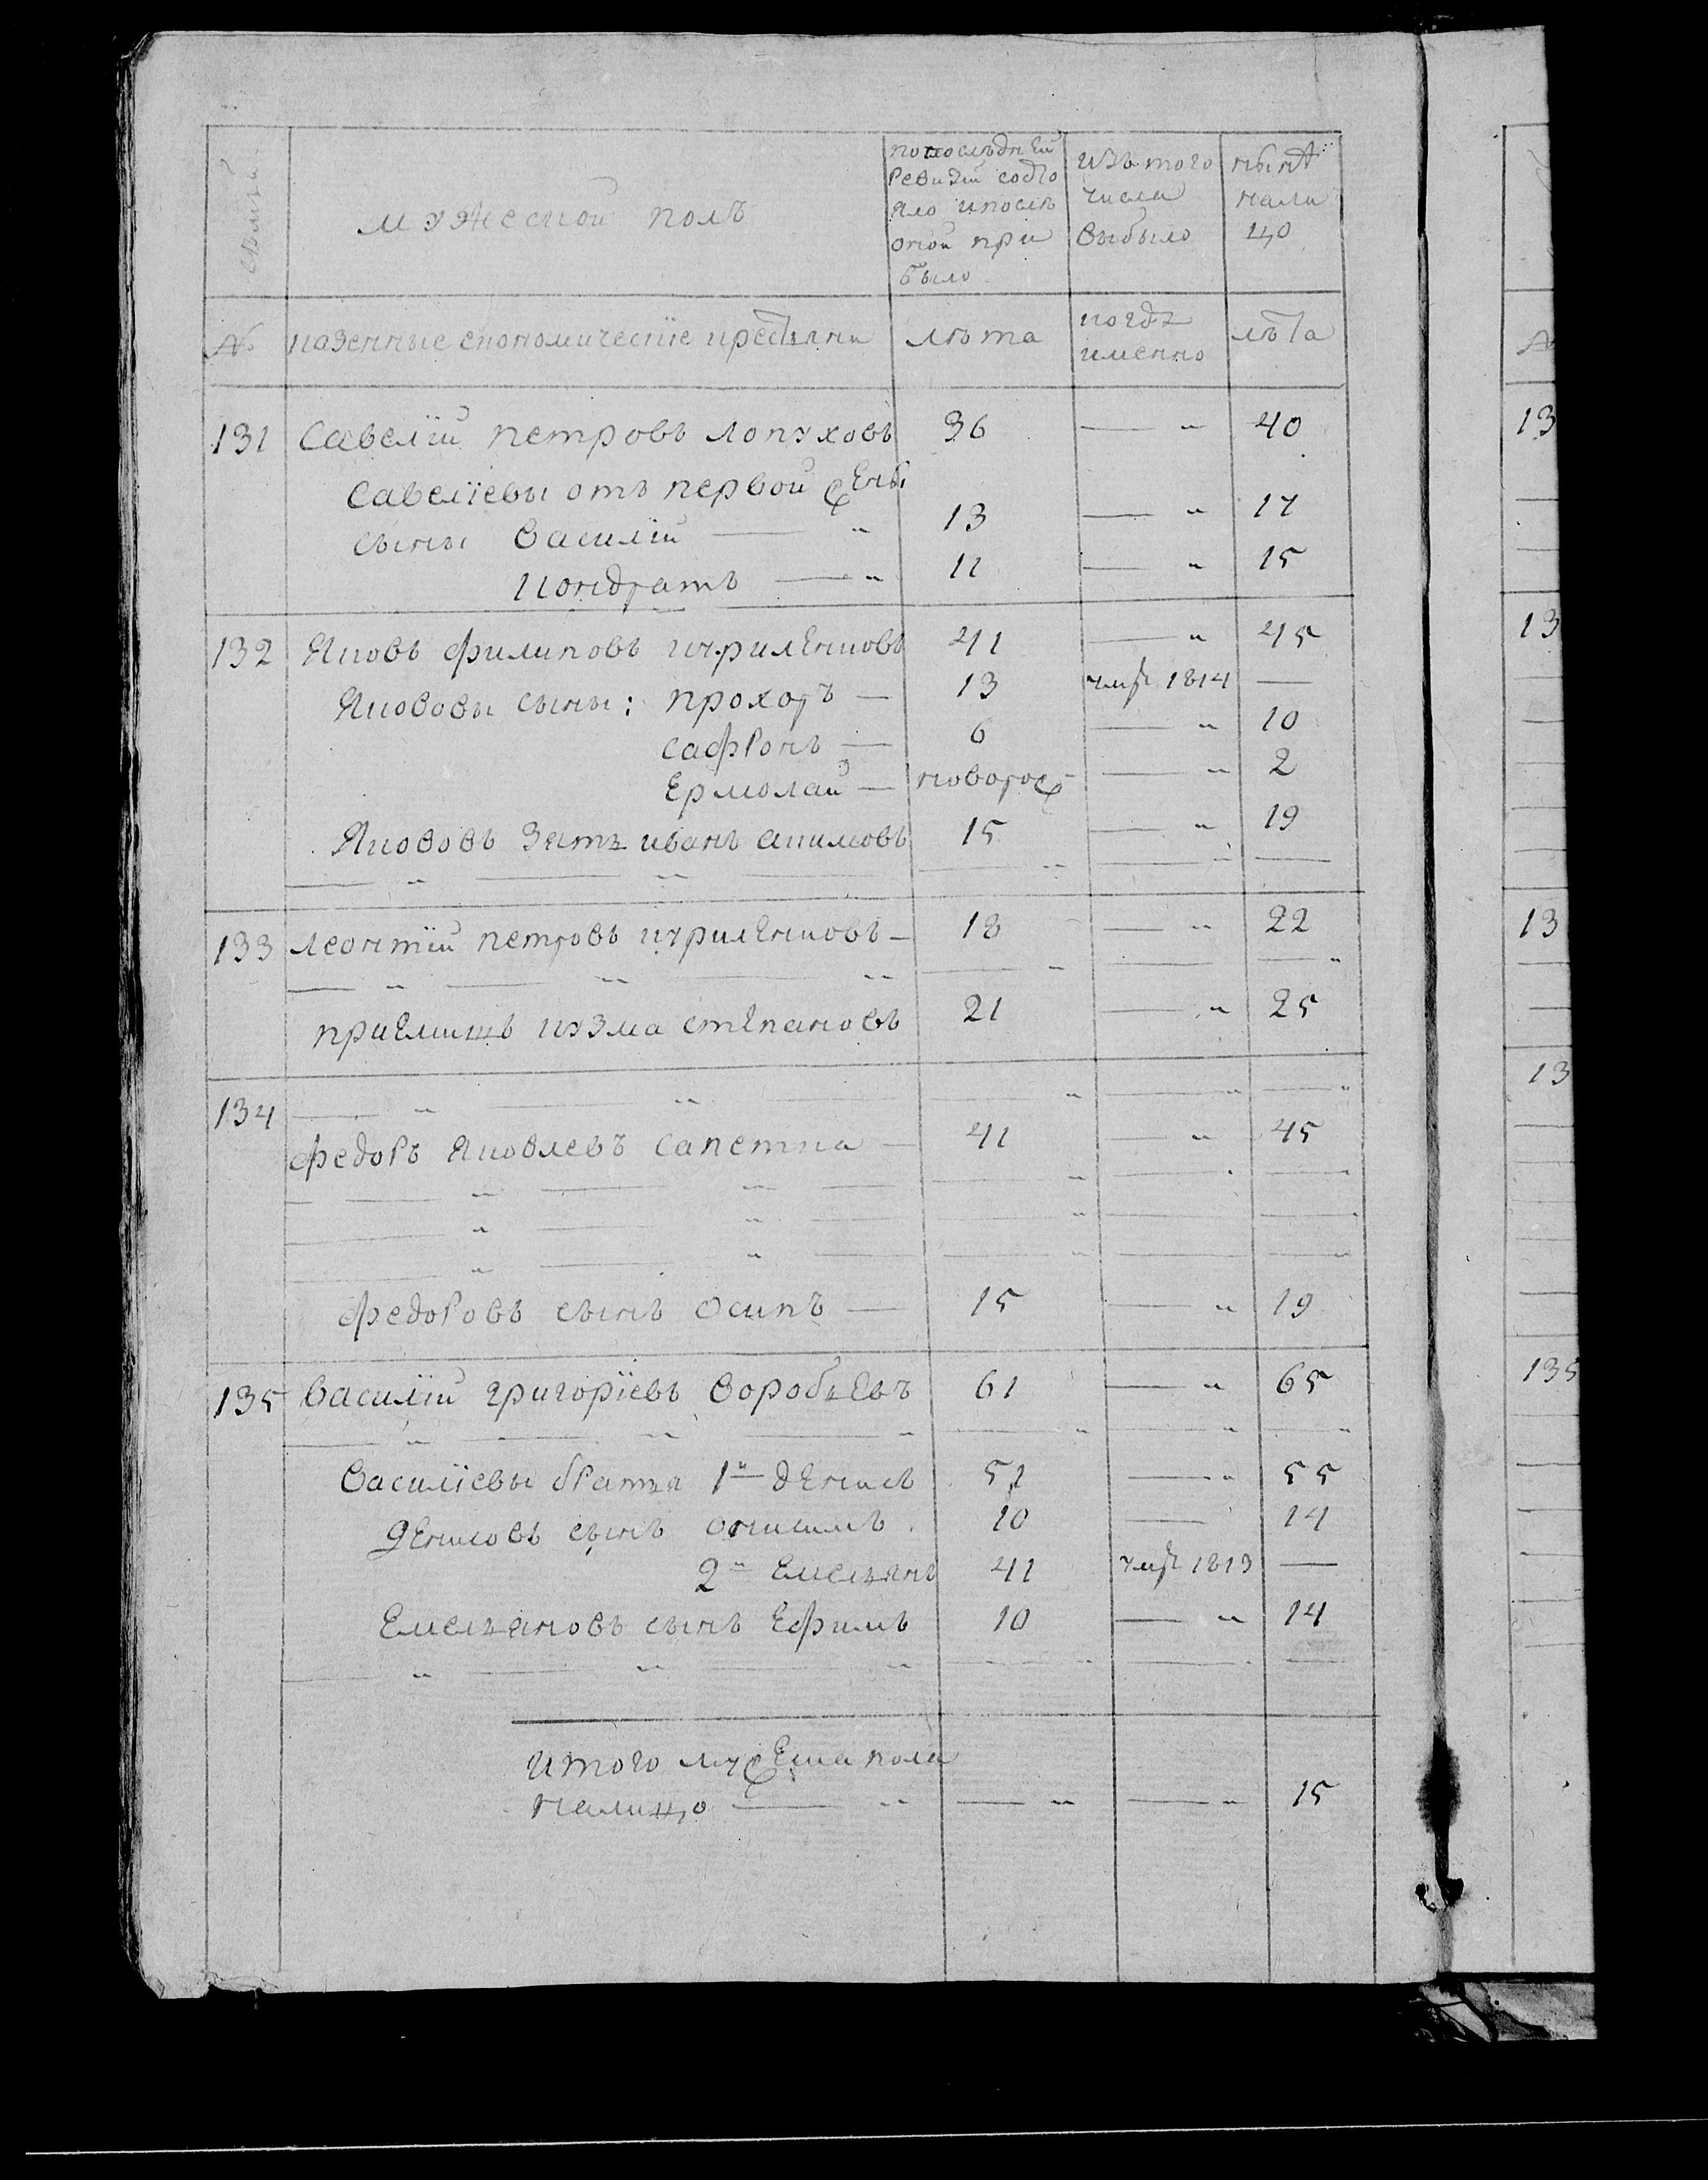 Семьи
мужеской полъ
попоследней
Ревизïи состо
яло ипослѣ
оной при
было
изъ того
числа
выбыло
нынѣ
нали
цо
№ казенные економическïе крестьяне лѣта когда
именно лѣта
131 Савелïй петровъ лопуховъ 36 — " 40
Савелïевы отъ первой жены
сыны Василïй — " 13 — " 17
кондратъ — " 11 — " 15
132 Яковъ филиповъ кириленковъ 41 — " 45
Яковову сыны: прохоръ — 13 умре 1814 —
сафронъ — 6 — " 10
Ермолай — новорож — " 2
Якововъ Зять иванъ акимовъ 15 — " 19
133 леонтïй петровъ кириленковъ — 18 — " 22
приемышъ кузма степановъ 21 — " 25
134
федоръ Яковлевъ сапетка — 41 — " 45
федоровъ сынъ Осипъ — 15 — " 19
135 Василïй григорïевъ Воробьевъ 61 — " 65
Василïевы братья 1й денисъ 51 — " 55
Денисовъ сынъ онисимъ 10 — 14
2й Емельянъ 41 умре 1813 —
Емельяновъ сынъ Ефимъ 10 — " 14
итого мужеска пола
налицо — " — " — " 15
№
13
13
13
13
135